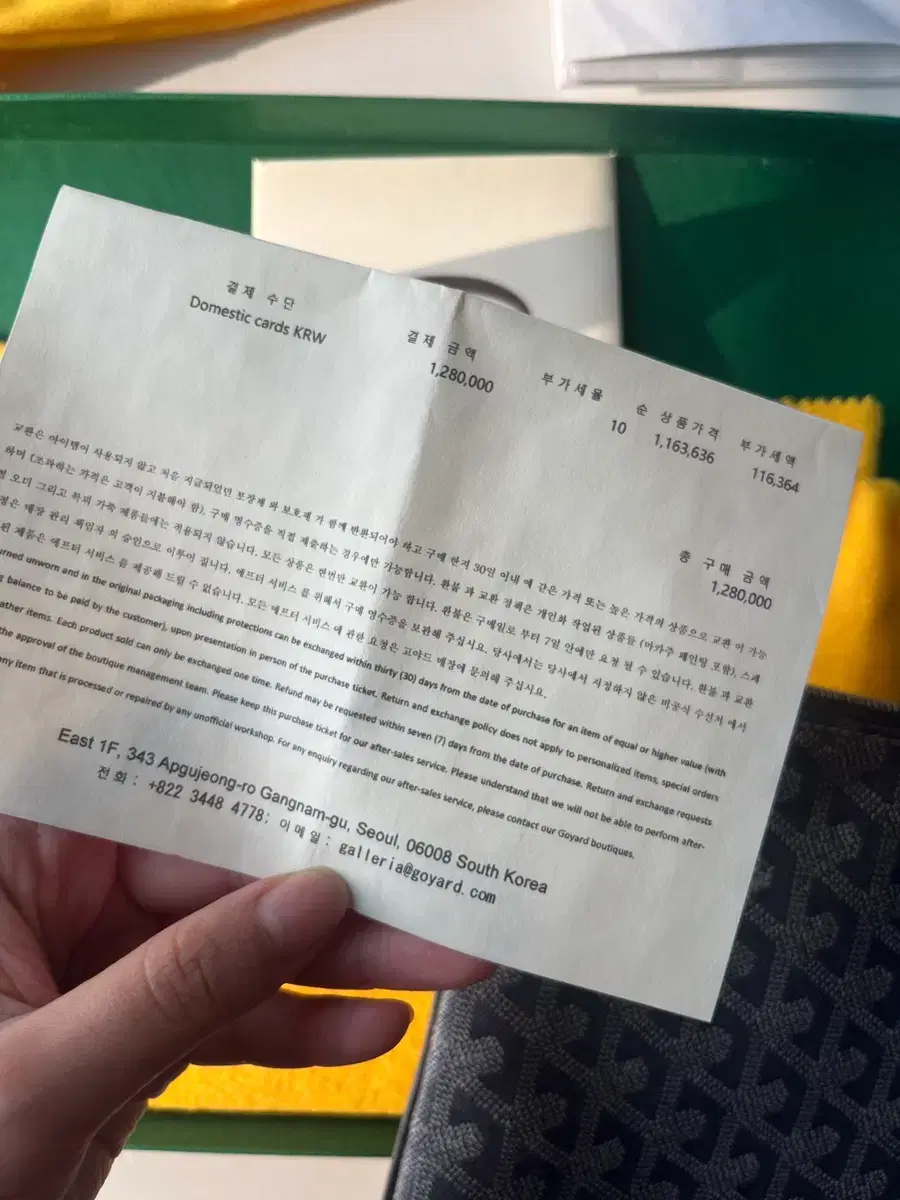 결제 수단
Domestic cards KRW
결제 금액
1,280,000
부가세율
10
순 상품가격
1,163,636
부가세액
116,364
총 구매 금액
1,280,000
교환은 아이템이 사용되지 않고 처음 지급되었던 포장재 와 보호재 가 함께 반환되어야 하고 구매 한지 30일 이내 에 같은 가격 또는 높은 가격의 상품으로 교환 이 가능
하며 (초과하는 가격은 고객이 지불해야 함), 구매 영수증을 직접 제출하는 경우에만 가능합니다. 환불 과 교환 정책은 개인화 작업된 상품들 (마카주 페인팅 포함), 스페
오더 그리고 특피 가죽 제품들에는 적용되지 않습니다. 모든 상품은 한번만 교환이 가능 합니다. 환불은 구매일로 부터 7일 안에만 요청 될 수 있습니다. 환불 과 교환
정은 매장 관리 책임자 의 승인으로 이루어 집니다. 애프터 서비스 를 위해서 구매 영수증을 보관해 주십시요. 당사에서는 당사에서 지정하지 않은 비공식 수선처 에서
된 제품은 애프터 서비스 를 제공해 드릴 수 없습니다. 모든 애프터 서비스 에 관한 요청은 고야드 매장에 문의해 주십시요.
urned unworn and in the original packaging including protections can be exchanged within thirty (30) days from the date of purchase for an item of equal or higher value (with
g balance to be paid by the customer), upon presentation in person of the purchase ticket. Return and exchange policy does not apply to personalized items, special orders
ather items. Each product sold can only be exchanged one time. Refund may be requested within seven (7) days from the date of purchase. Return and exchange requests
the approval of the boutique management team. Please keep this purchase ticket for our after-sales service. Please understand that we will not be able to perform after-
ny item that is processed or repaired by any unofficial workshop. For any enquiry regarding our after-sales service, please contact our Goyard boutiques.
East 1F, 343 Apgujeong-ro Gangnam-gu, Seoul, 06008 South Korea
전화: +822 3448 4778; 이메일: galleria@goyard.com